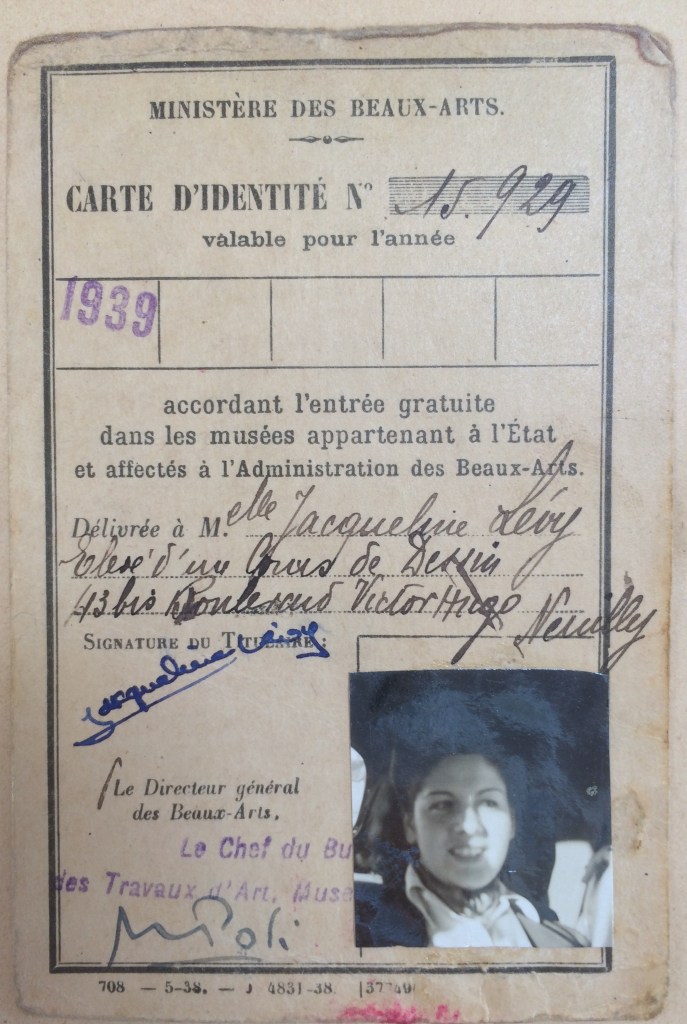 MINISTÈRE DES BEAUX-ARTS.
CARTE D'IDENTITÉ N° 15.929
valable pour l'année
1939
accordant l'entrée gratuite
dans les musées appartenant à l'État
et affectés à l'Administration des Beaux-Arts.
Délivrée à M.elle Jacqueline Lévy
Elève d'un Cours de Dessin
43 bis Boulevard Victor Hugo Neuilly
SIGNATURE DU TITULAIRE :
Jacqueline Lévy
Le Directeur général
des Beaux-Arts,
Le Chef du Bu
des Travaux d'Art, Muse
Poli
708 — 5-38. — J 4831-38.